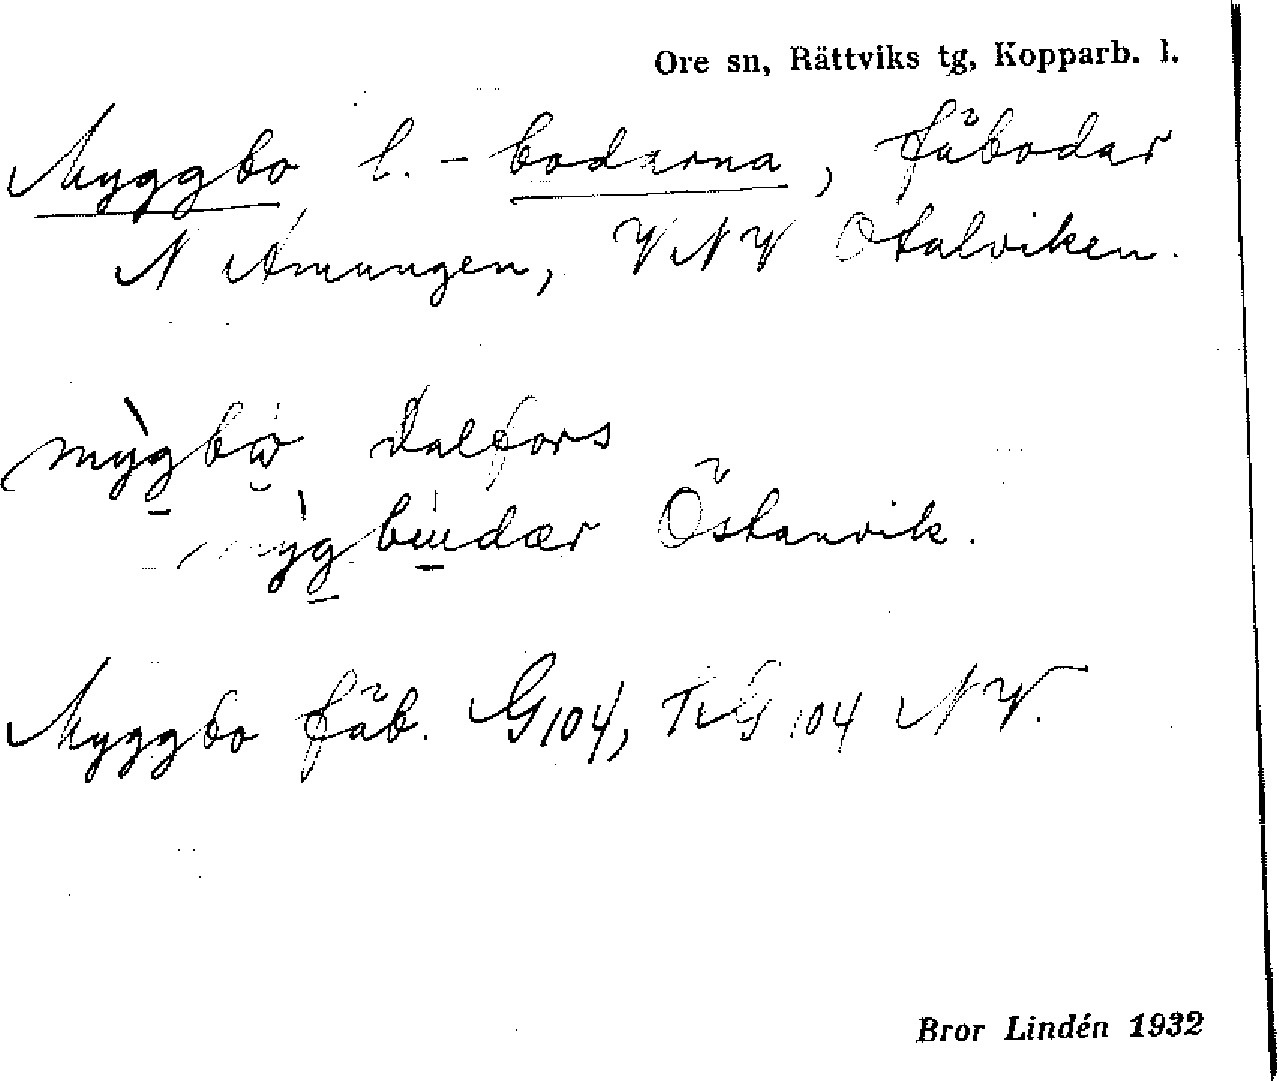 Ore sn, Rättviks tg, Kopparb. l.
Myggbo l. -bodarna, fäbodar
N Amungen, VNV Otalviken.
mỳgbω Dalfors
mỳgbùdær Östanvik.
Myggbo fäb. G104, TkG104 NV.
Bror Lindén 1932